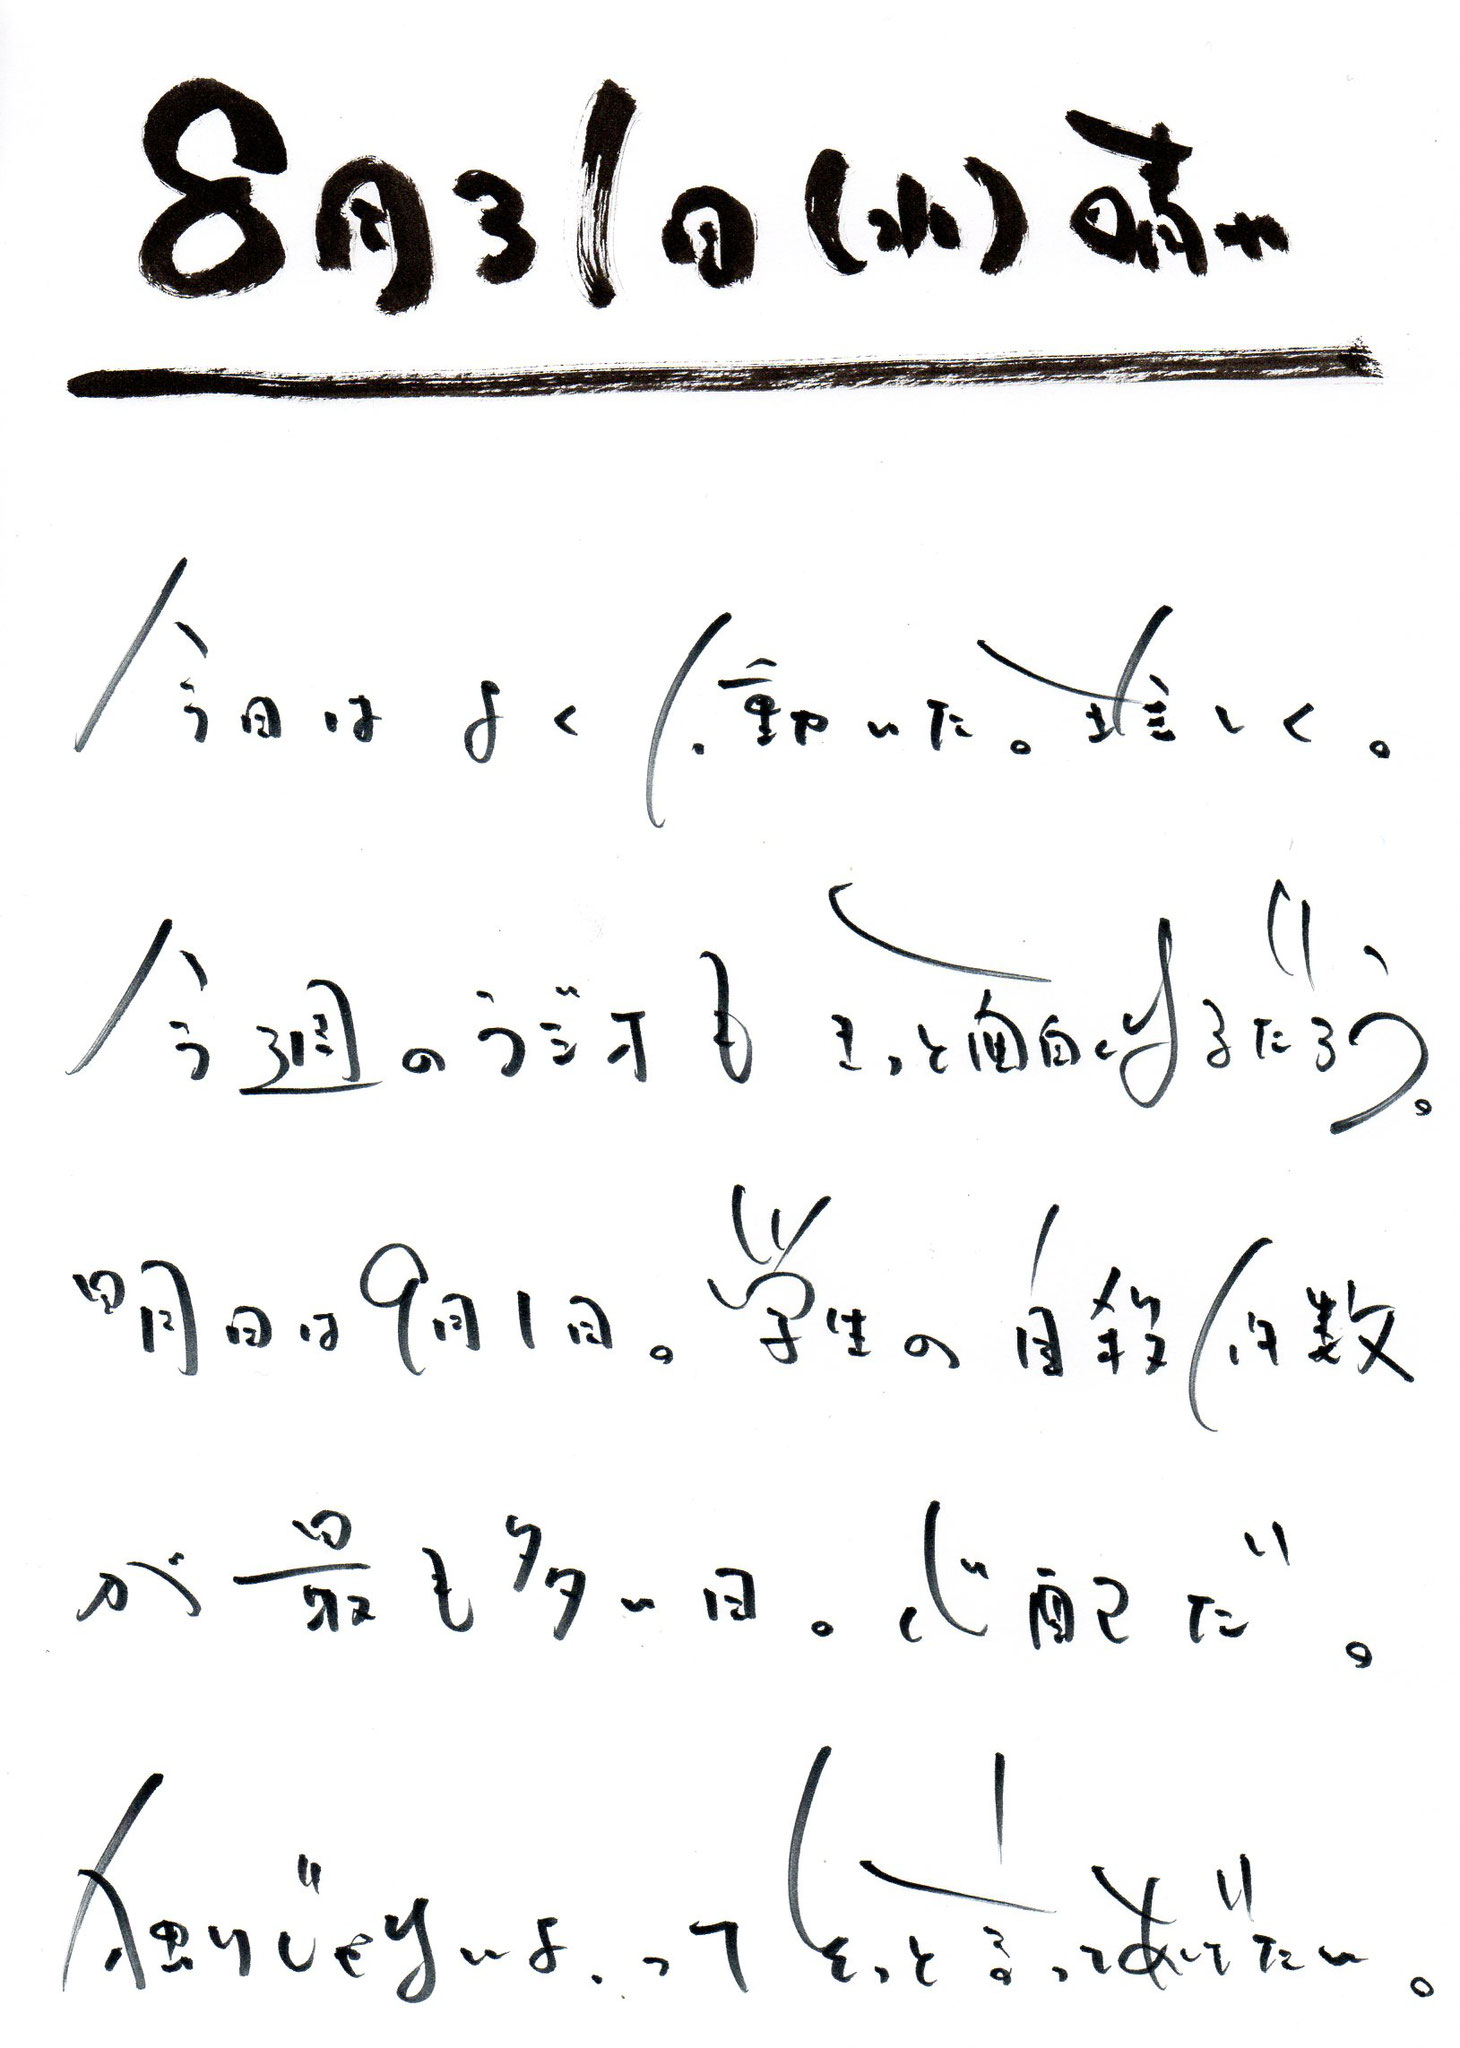 8月31日(水)晴れ
今日はよく働いた。楽しく。
今週のラジオもきっと面白くなるだろう。
明日は9月1日。学生の自殺件数
が最も多い日。心配だ。
独りじゃないよ、ってそっと言ってあげたい。